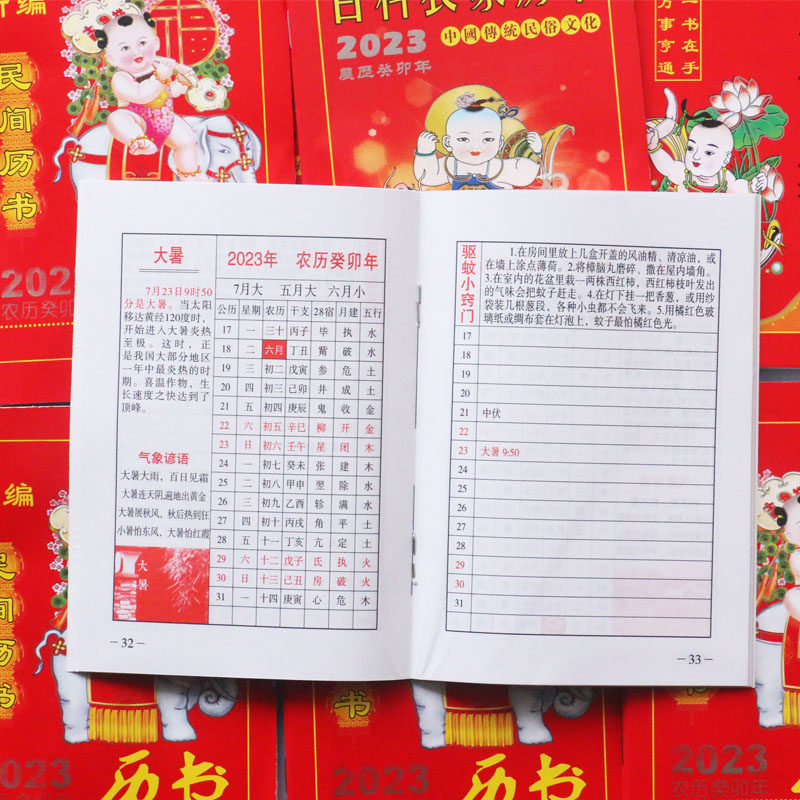 新编
民间历书
2023
农历癸卯年
百科农家历书
2023
中國傳統民俗文化
農歷癸卯年
一书在手
万事亨通
大暑
7月23日9时50
分是大暑。当太阳
移达黄经120度时，
开始进入大暑炎热
至极。这时，正
是我国大部分地区
一年中最炎热的时
期。喜温作物，生
长速度之快达到了
顶峰。
气象谚语
大暑大雨，百日见霜
大暑连天阴,遍地出黄金
大暑展秋风，秋后热到狂
小暑怕东风，大暑怕红霞
大暑
2023年 农历癸卯年
7月大 五月大 六月小
公历 星期 农历 干支 28宿 月建 五行
17 一 三十 丙子 毕 执 水
18 二 六月 丁丑 觜 破 水
19 三 初二 戊寅 参 危 土
20 四 初三 己卯 井 成 土
21 五 初四 庚辰 鬼 收 金
22 六 初五 辛巳 柳 开 金
23 日 初六 壬午 星 闭 木
24 一 初七 癸未 张 建 木
25 二 初八 甲申 翌 除 水
26 三 初九 乙酉 轸 满 水
27 四 初十 丙戌 角 平 土
28 五 十一 丁亥 亢 定 土
29 六 十二 戊子 氐 执 火
30 日 十三 己丑 房 破 火
31 一 十四 庚寅 心 危 木
－32－
驱蚊小窍门
1.在房间里放上几盒开盖的风油精、清凉油，或
在墙上涂点薄荷。2.将樟脑丸磨碎、撒在屋内墙角。
3.在室内的花盆里栽一两株西红柿，西红柿枝叶发出
的气味会把蚊子赶走。4.在灯下挂一把香葱，或用纱
袋装几根葱段，各种小虫都不会飞来。5.用橘红色玻
璃纸或绸布套在灯泡上，蚊子最怕橘红色光。
17
18
19
20
21 中伏
22
23 大暑 9:50
24
25
26
27
28
29
30
31
－33－
编
民间历书
2023
历书
2023
历书
2023
农历癸卯年